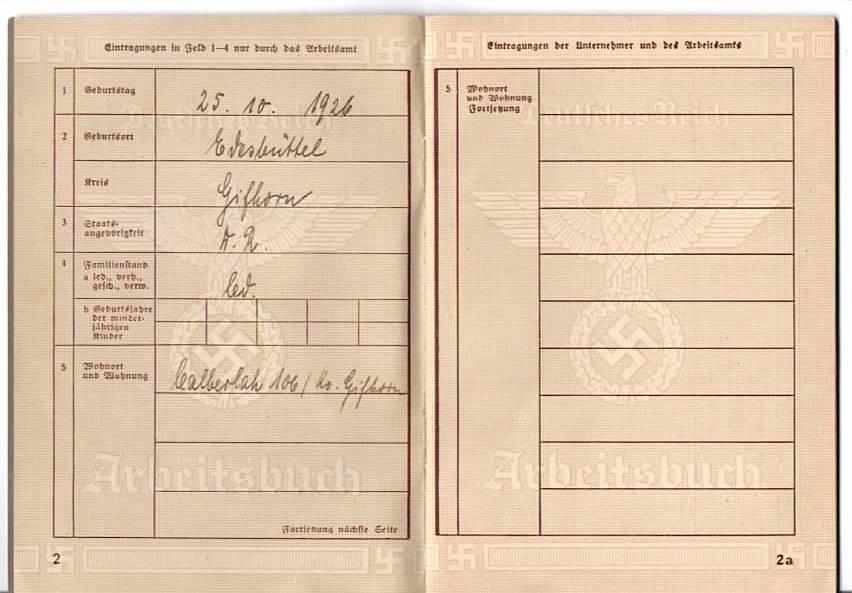 Eintragungen in Feld 1—4 nur durch das Arbeitsamt
1 Geburtstag 25. 10. 1926
2 Geburtsort Edesbüttel
Kreis Gifhorn
3 Staats-
angehörigkeit D. R.
4 Familienstand
a led., verh.,
gesch., verw. led.
b Geburtsjahre
der minder-
jährigen
Kinder
5 Wohnort
und Wohnung Calberlah 106 / Kr. Gifhorn
Fortsetzung nächste Seite
Arbeitsbuch
2
Eintragungen der Unternehmer und des Arbeitsamts
5 Wohnort
und Wohnung
Fortsetzung
Deutsches Reich
Arbeitsbuch
2a